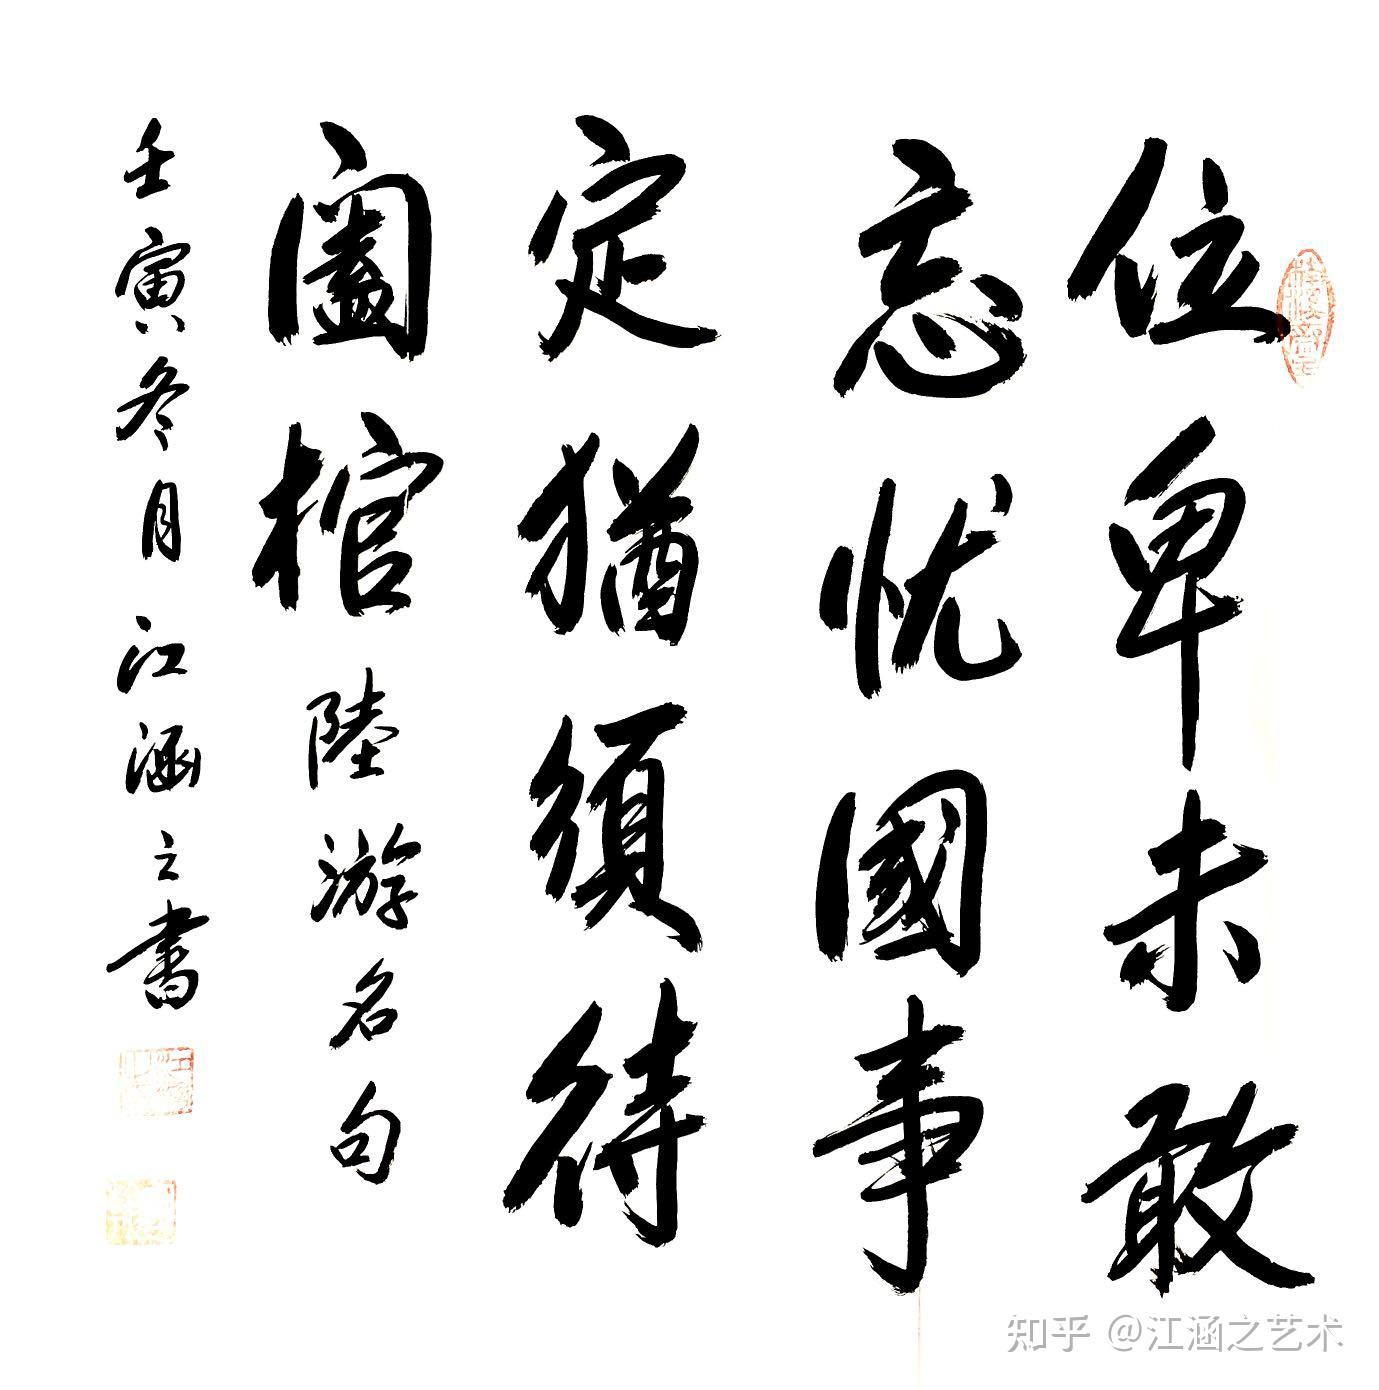 位卑未敢
忘忧國事
定猶須待
闔棺陸游名句
壬寅冬月江涵之書
知乎 @江涵之艺术